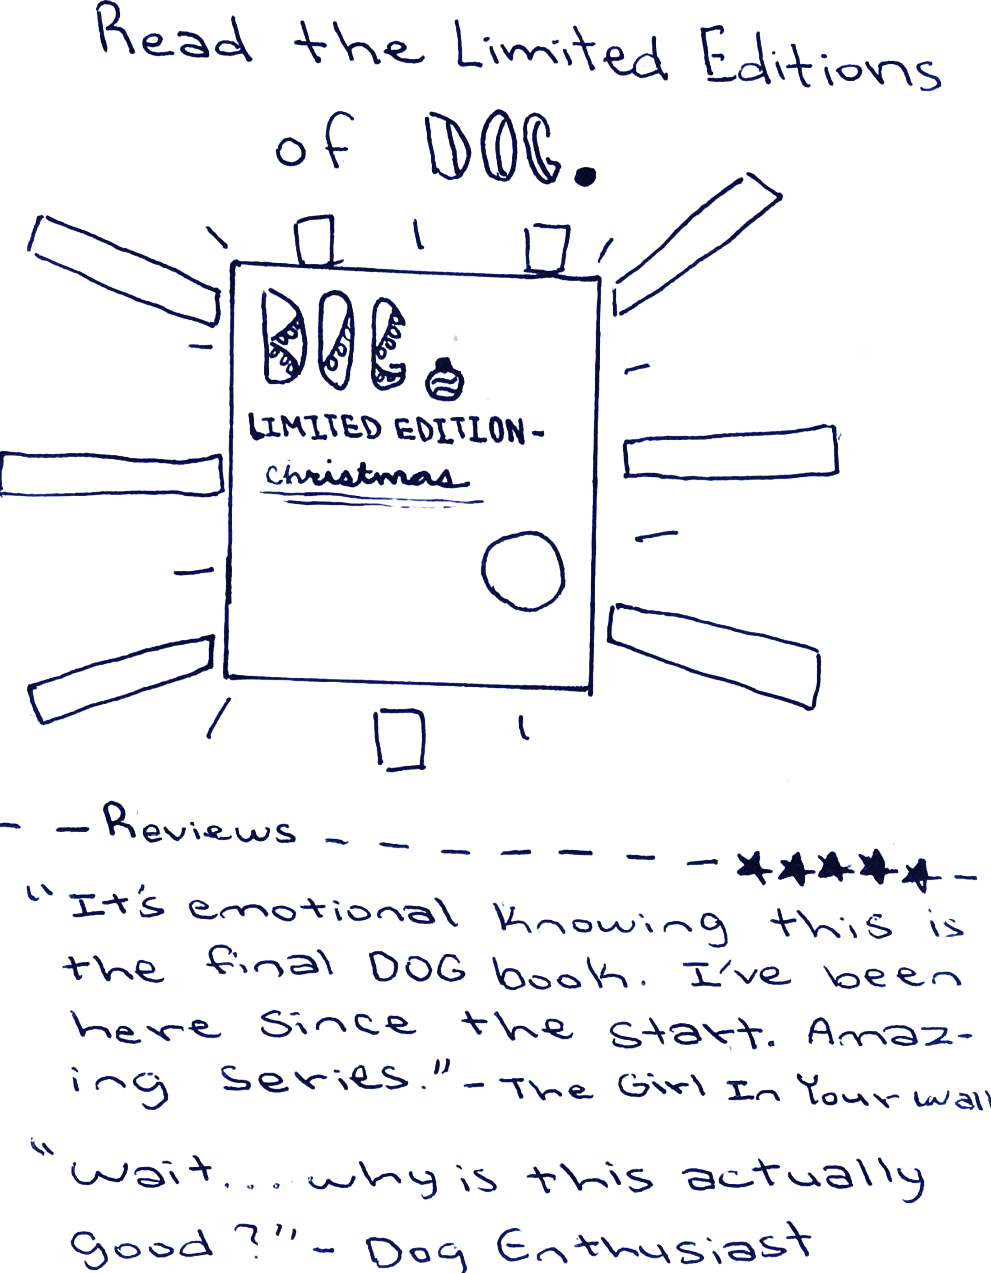 Read the Limited Editions
of DOG.
DOG.
LIMITED EDITION-
Christmas
- - Reviews - - - - - - - ★★★★★ -
"It's emotional knowing this is
the final DOG book. I've been
here since the start. Amaz-
ing series." - The Girl In Your Wall
"Wait... why is this actually
good?" - Dog Enthusiast